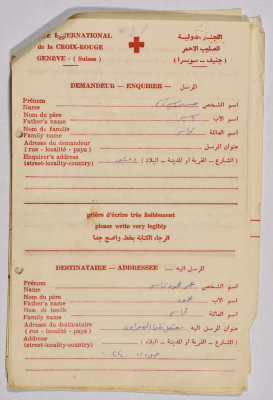 COMITÉ INTERNATIONAL اللجنة الدولية
de la CROIX-ROUGE الصليب الاحمر
GENÈVE - (Suisse) (جنيف ـ سويسرا)
DEMANDEUR — ENQUIRER — المرسل
Prénom
Name اسم الشخص
Nom du père
Father's name اسم الأب
Nom de famille
Family name اسم العائلة
Adresse du demandeur عنوان المرسل
(rue - localité - pays)
Enquirer's address (الشارع ـ القرية أو المدينة ـ البلاد)
(street-locality-country)
prière d'écrire très lisiblement
please write very legibly
الرجاء الكتابة بخط واضح جداً
DESTINATAIRE — ADDRESSEE — المرسل اليه
Prénom
Name اسم الشخص
Nom du père
Father's name اسم الأب محمود
Nom de famille
Family name اسم العائلة قاسم
Adresse du destinataire عنوان المرسل اليه
(rue - localité - pays)
Address (الشارع ـ القرية أو المدينة ـ البلاد)
(street-locality-country)